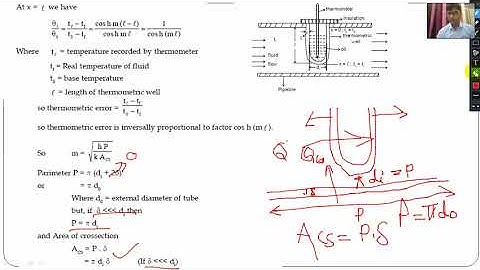 At x = ℓ we have
θₗ/θ₀ = (tₗ − t_f)/(t₀ − t_f) = cos h m (ℓ − ℓ)/cos h m ℓ = 1/cos h (m ℓ)
Where tₗ = temperature recorded by thermometer
t_f = Real temperature of fluid
t₀ = base temperature
ℓ = length of thermometric well
so thermometric error = (tₗ − t_f)/(t₀ − t_f)
so thermometric error is inversally proportional to factor cos h (m ℓ).
So m = √(h P / k A_cs)
Perimeter P = π (dᵢ + 2δ) 0
or = π d₀
Where d₀ = external diameter of tube
but, if δ <<< dᵢ then
P = π dᵢ
and Area of crossection
A_cs = P . δ
= π dᵢ δ (If δ <<< dᵢ)
thermometer
insulation
thermometric
well
oil
fluid
flow
Pipeline
di = P
P
P = πdo
Acs = P.δ